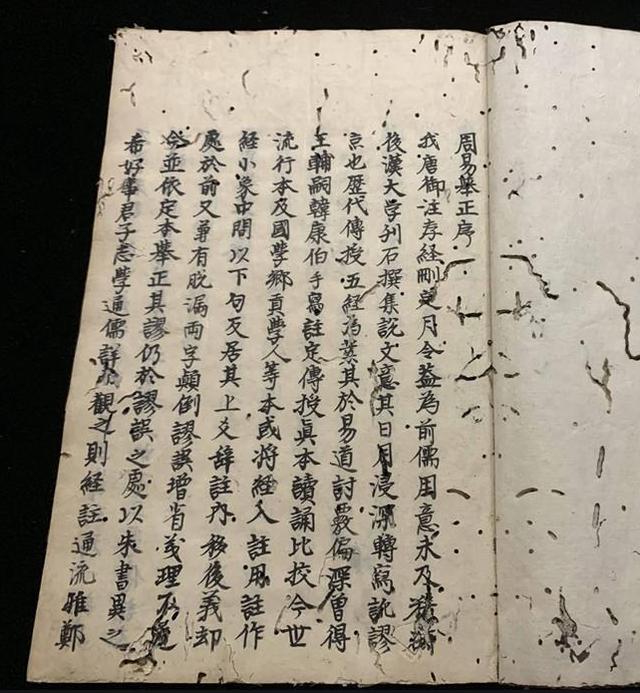 周易舉正序
我唐御注孝経刪定月令蓋為前儒用意未及
後漢大学刋石撰集說文意其日月浸深轉寫訛謬
京也歷代傳授五経為業其於易道討覈偏深曽得
王輔嗣韓康伯手寫註定傳授眞本讀誦比挍今世
流行本及國學郷貢學人等本或将経入註用註作
経小象中間以下句反居其上爻辞註内移後義却
處於前又兼有脱漏両字顛倒謬誤増省義理不
今並依定本舉正其謬仍於謬誤之處以朱書異之
希好事君子志學通儒詳而觀之則経註通流雅鄭